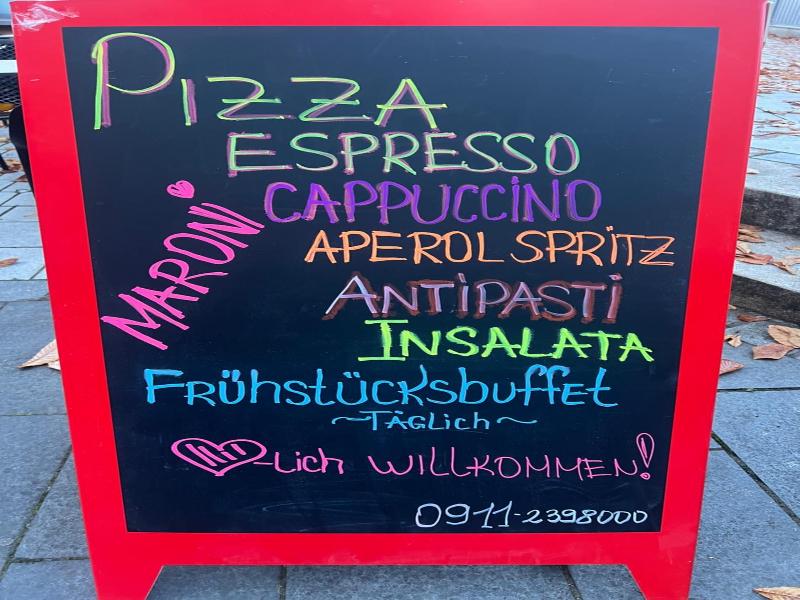 PIZZA
ESPRESSO
CAPPUCCINO
MARONI
APEROL SPRITZ
ANTIPASTI
INSALATA
FRÜhstücksbuffet
~TÄGLich~
-Lich WILLKOMMEN!
0911-2398000